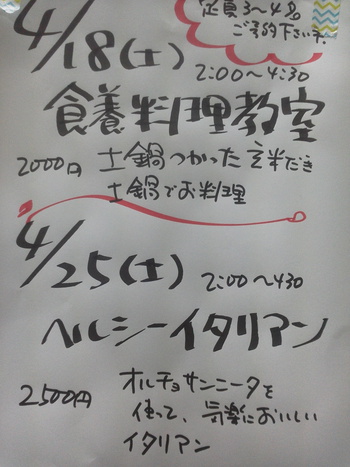 定員3〜4名
ご予約下さいネ
4/18(土) 2:00〜4:30
食養料理教室
2000円 土鍋つかった玄米だき
土鍋でお料理
4/25(土) 2:00〜430
ヘルシーイタリアン
2500円 オルチョサンニータを
使って、気楽においしい
イタリアン